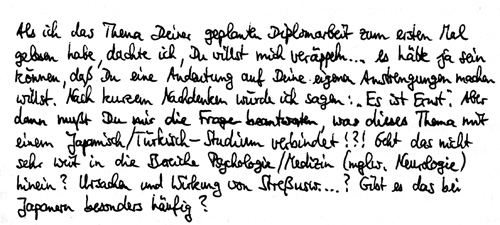 Als ich das Thema Deiner geplanten Diplomarbeit zum ersten Mal
gelesen habe, dachte ich, Du willst mich veräppeln... es hätte ja sein
können, daß Du eine Andeutung auf Deine eigenen Anstrengungen machen
willst. Nach kurzem Nachdenken würde ich sagen: „Es ist Ernst". Aber
dann mußt Du mir die Frage beantworten, was dieses Thema mit
einem Japanisch/Türkisch-Studium verbindet !?! Geht das nicht
sehr weit in die Bereiche Psychologie/Medizin (mglw. Neurologie)
hinein? Ursachen und Wirkung von Streß usw....? Gibt es das bei
Japanern besonders häufig?